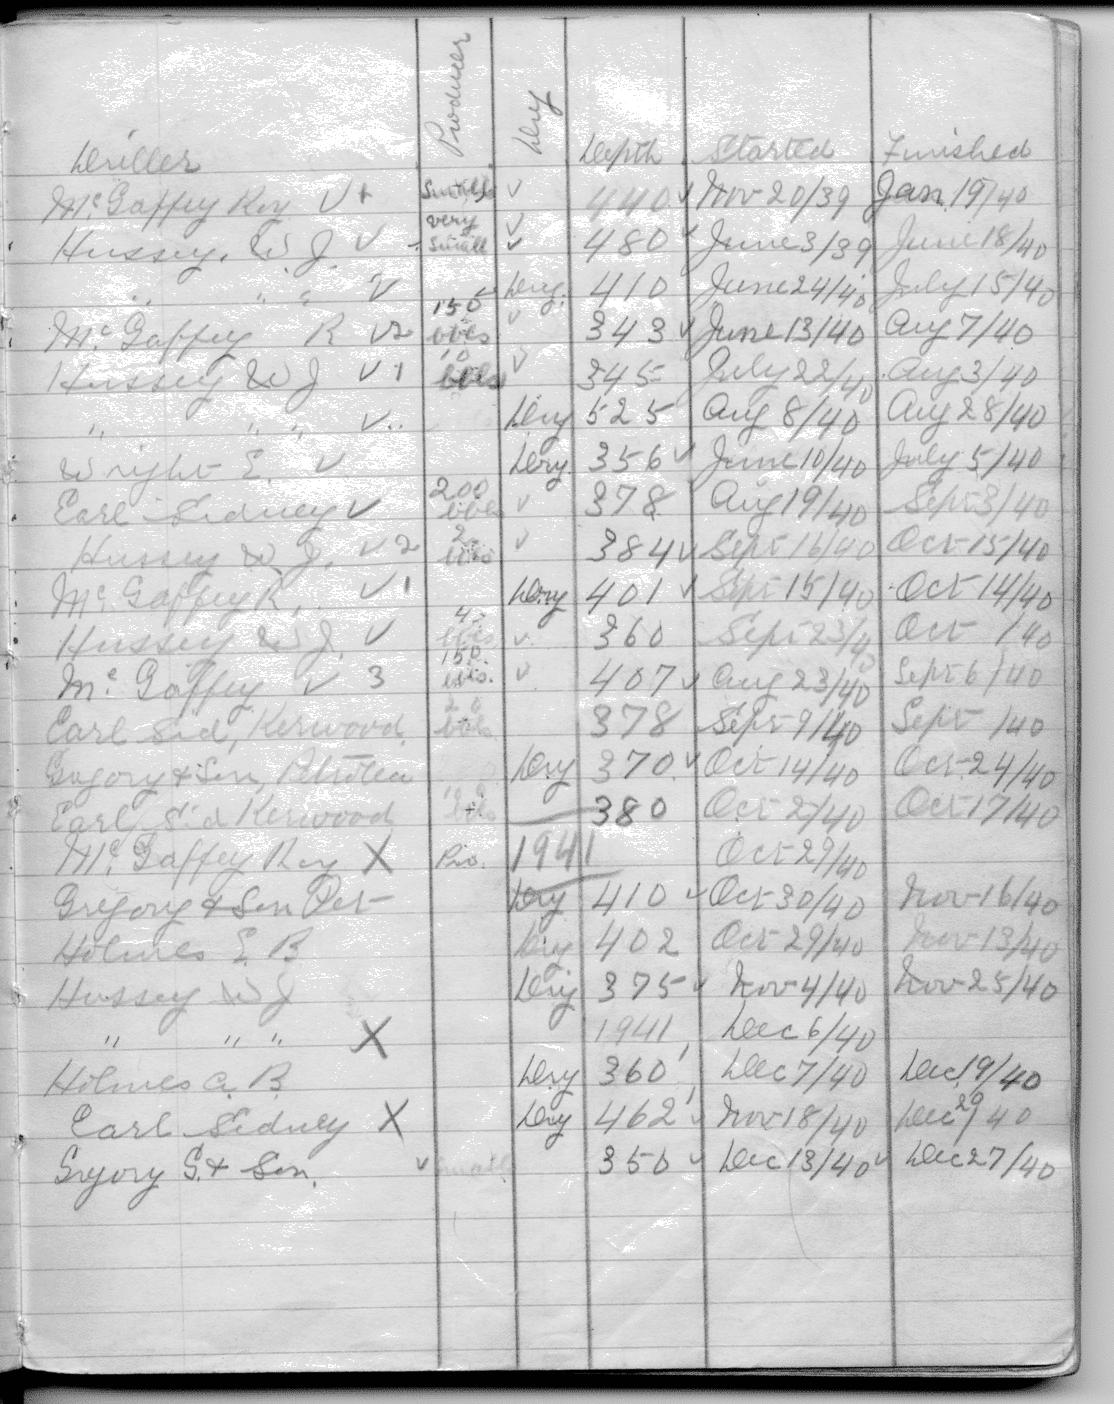 Driller Producer Dry Depth Started Finished
McGaffey Roy ✓ Small ✓ 440 ✓ Nov 20/39 Jan 19/40
Hussey, W. J. ✓ very small ✓ 480 ✓ June 3/39 June 18/40
" " " ✓ Dry. 410 June 24/40 July 15/40
McGaffey R ✓2 150 bbls ✓ 343 ✓ June 13/40 Aug 7/40
Hussey W J ✓1 10 bbls ✓ 345 July 22/40 Aug 3/40
" " " ✓ Dry 525 Aug 8/40 Aug 28/40
Wright E. ✓ Dry 356 ✓ June 10/40 July 5/40
Earl Sidney ✓ 200 bbls ✓ 378 Aug 19/40 Sept 3/40
Hussey W. J. ✓2 2 bbls ✓ 384 ✓ Sept 16/40 Oct 15/40
McGaffey R. ✓1 Dry 401 ✓ Sept 15/40 Oct 14/40
Hussey W J. ✓ 4 bbls ✓ 360 Sept 23/40 Oct /40
McGaffey ✓3 150 bbls. ✓ 407 ✓ Aug 23/40 Sept 6/40
Earl Sid, Kerwood. 20 bbls 378 Sept 9/40 Sept /40
Gregory & Son, Petrolea Dry 370 ✓ Oct 14/40 Oct 24/40
Earl, Sid Kerwood bbls 380 Oct 2/40 Oct 17/40
McGaffey Roy X Pro. 1941 Oct 29/40
Gregory & Son Pet Dry 410 ✓ Oct 30/40 Nov 16/40
Holmes E. B Dry 402 Oct 29/40 Nov 13/40
Hussey W J Dry 375 ✓ Nov 4/40 Nov 25/40
" " " X 1941 Dec 6/40
Holmes B. Dry 360' Dec 7/40 Dec 19/40
Earl Sidney X Dry 462' ✓ Nov 18/40 Dec 29/40
Gregory G. & Son. ✓ Small 350 ✓ Dec 13/40 ✓ Dec 27/40